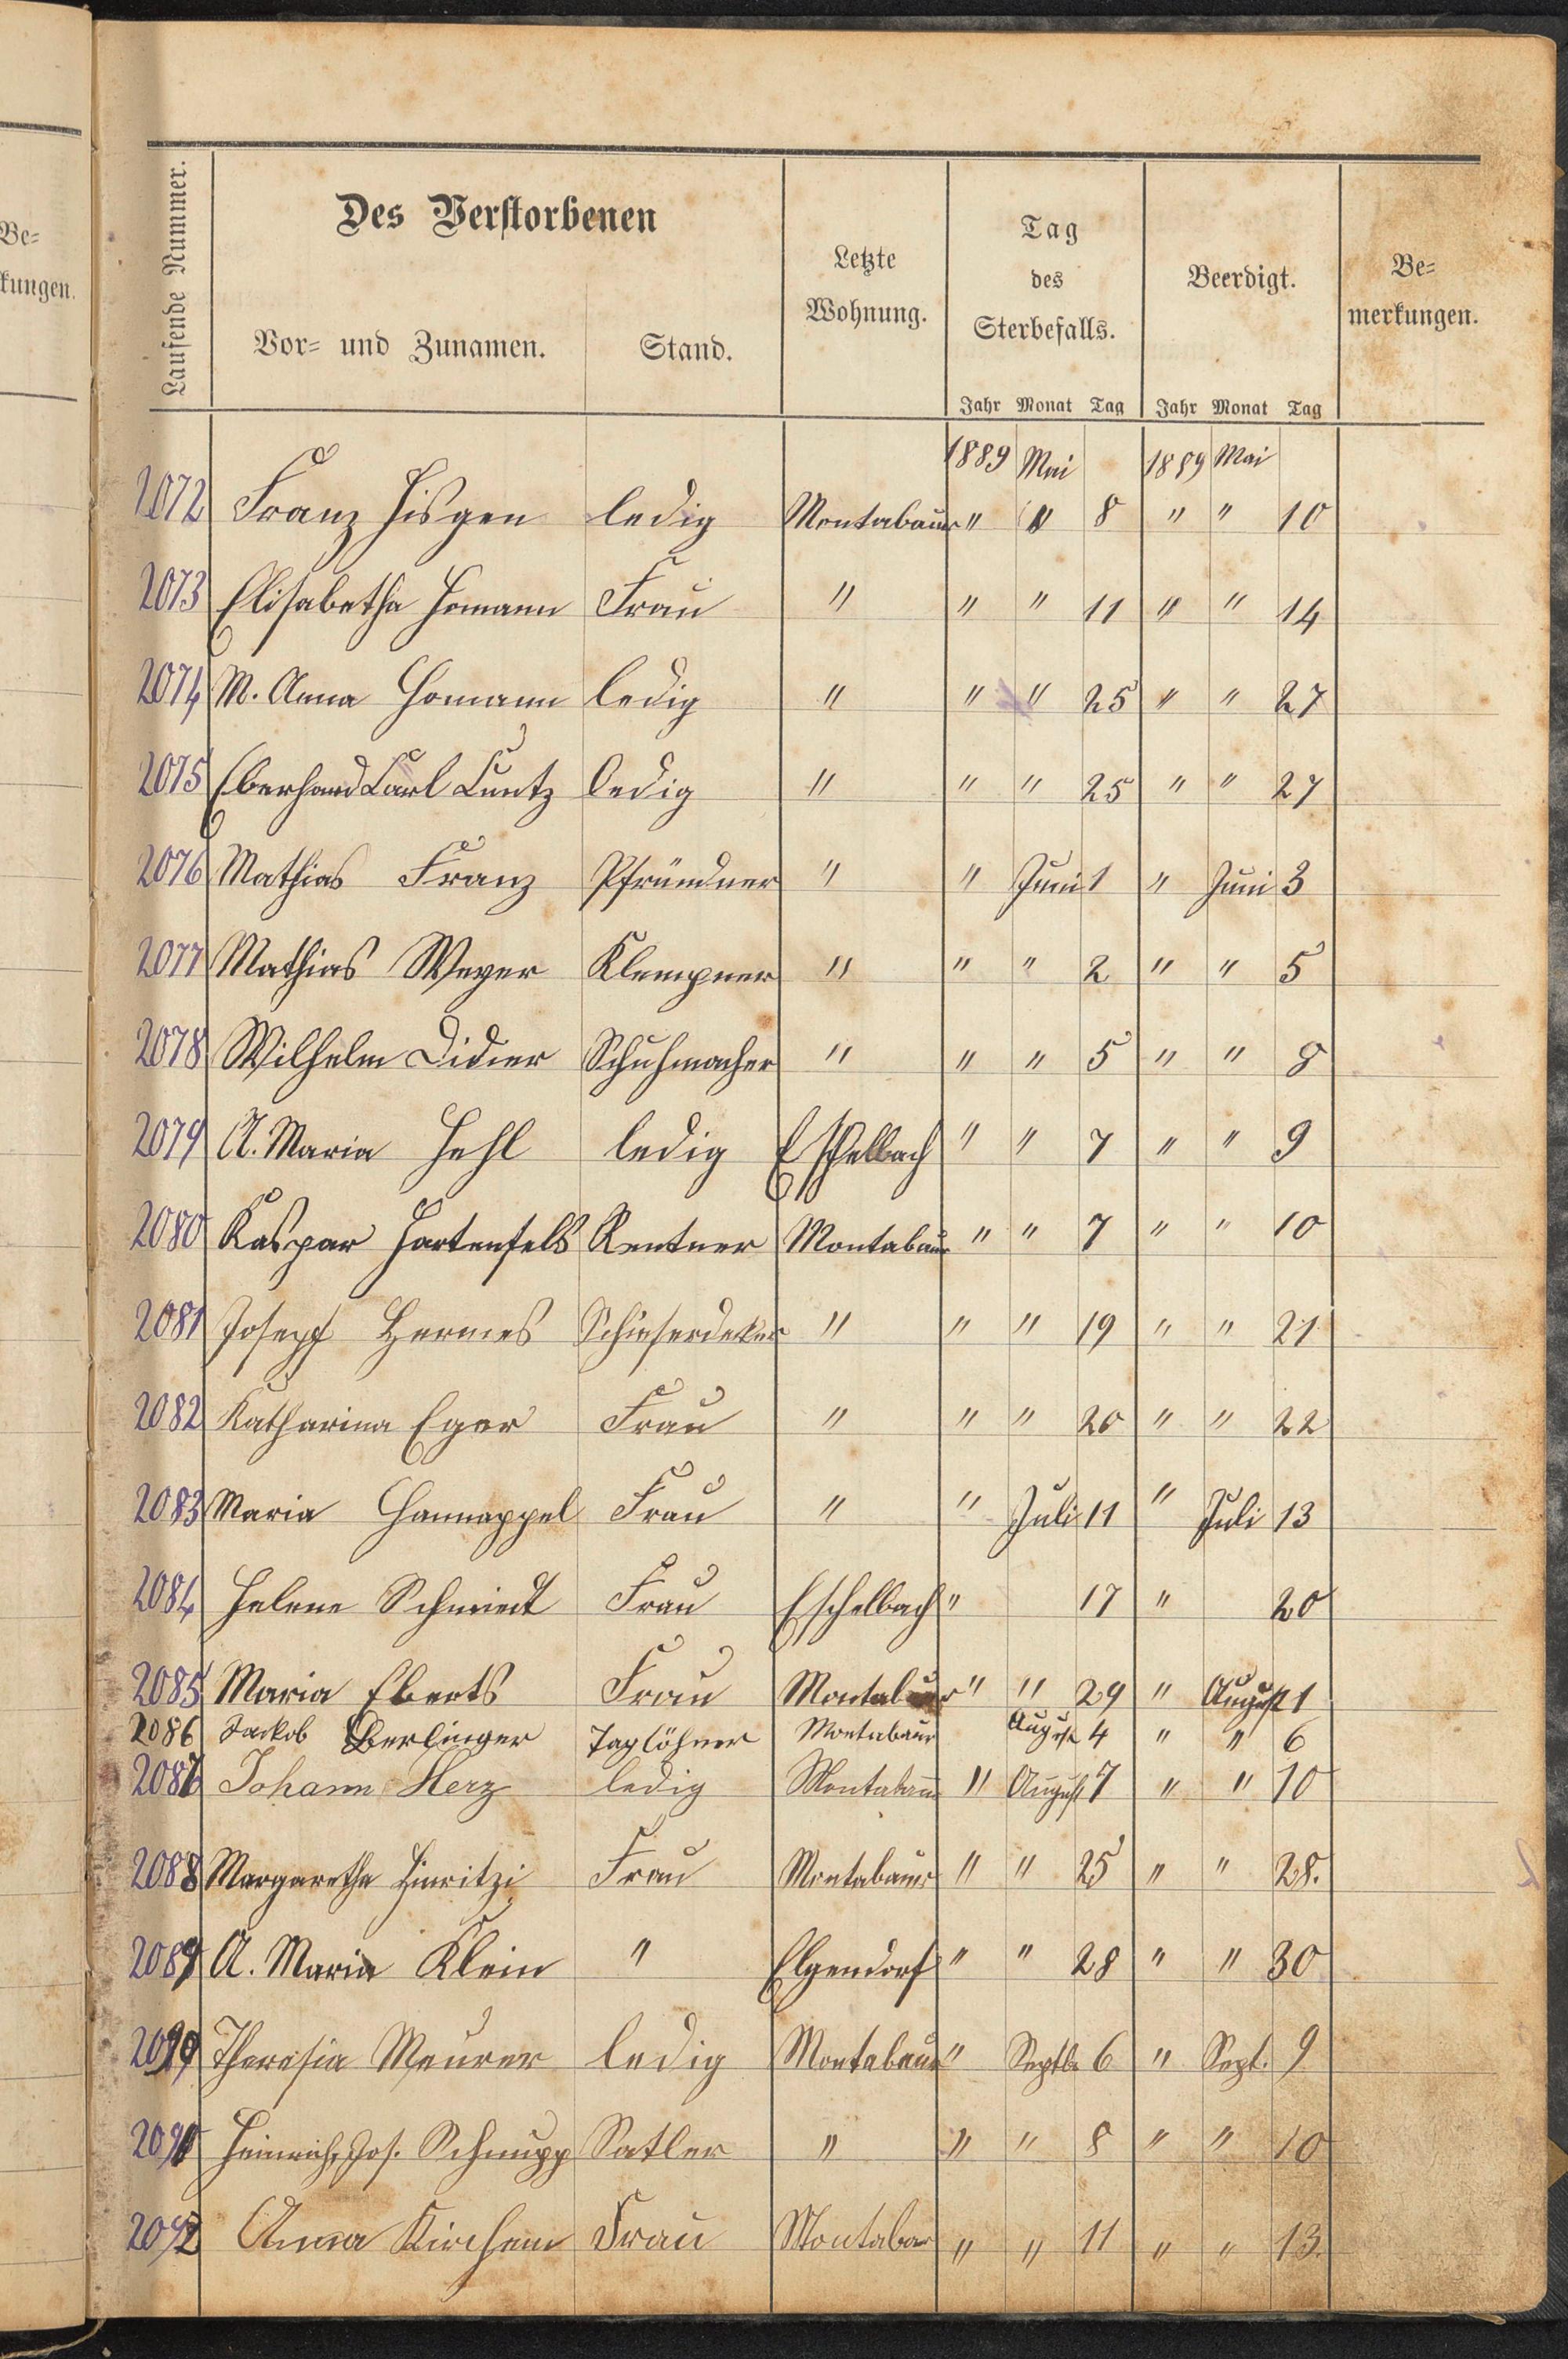 Be=
kungen.
Laufende Nummer.
Des Verstorbenen
Vor= und Zunamen.
Stand.
Letzte
Wohnung.
Tag
des
Sterbefalls.
Beerdigt.
Be=
merkungen.
Jahr Monat Tag Jahr Monat Tag
1889 Mai 1889 Mai
2072 Franz Hisgen ledig Montabaur " " 8 " " 10
2073 Elisabetha Homann Frau " " " 11 " " 14
2074 M. Anna Homann ledig " " " 25 " " 27
2075 Eberhard Carl Cuntz ledig " " " 25 " " 27
2076 Mathias Franz Pfründner " " Juni 1 " Juni 3
2077 Mathias Weyer Klempner " " " 2 " " 5
2078 Wilhelm Didier Schuhmacher " " " 5 " " 8
2079 A. Maria Hehl ledig Eschelbach " " 7 " " 9
2080 Kaspar Hartenfels Rentner Montabaur " " 7 " " 10
2081 Josepf Hermes Schieferdeker " " " 19 " " 21
2082 Katharina Eger Frau " " " 20 " " 22
2083 Maria Hannappel Frau " " Juli 11 " Juli 13
2084 Helene Schmidt Frau Eschelbach " 17 " 20
2085 Maria Eberts Frau Montabaur " " 29 " August 1
2086 Jackob Berlinger Taglöhner Montabaur August 4 " " 6
2087 Johann Herz ledig Montabaur " August 7 " " 10
2088 Margaretha Frau Montabaur " " 25 " " 28.
2089 A. Maria Klein " Elgendorf " " 28 " " 30
2090 Theresia Meurer ledig Montabaur " Septb. 6 " Sept. 9
2091 Heinrich, Jos. Schnupp Satler " " " 8 " " 10
2092 Anna Kirchem Frau Montabar " " 11 " " 13.